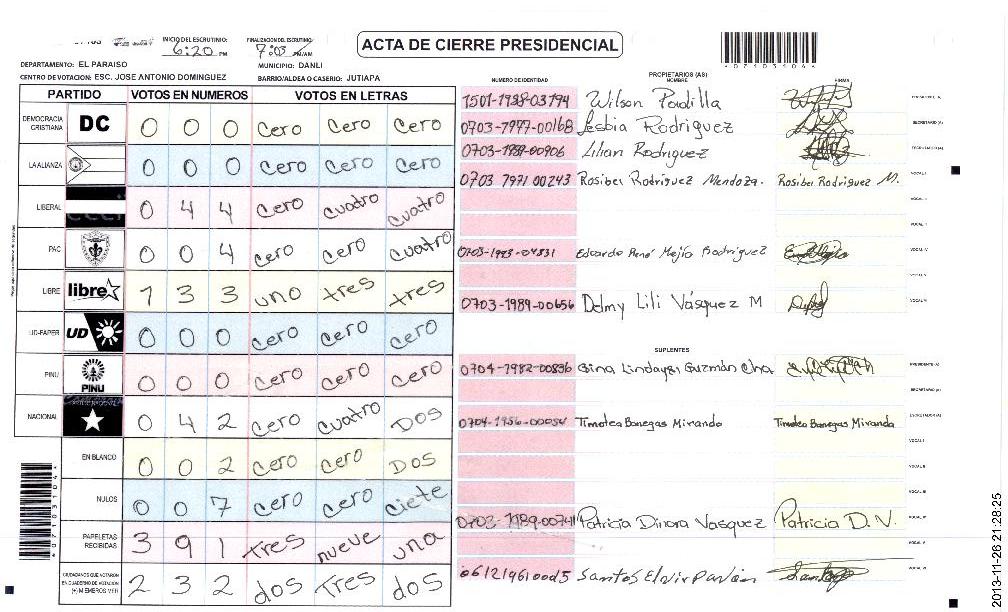 INICIO DEL ESCRUTINIO: 6:20 PM
FINALIZACION DEL ESCRUTINIO: 7:03 PM/AM
ACTA DE CIERRE PRESIDENCIAL
DEPARTAMENTO: EL PARAISO
MUNICIPIO: DANLI
CENTRO DE VOTACION: ESC. JOSE ANTONIO DOMINGUEZ
BARRIO/ALDEA O CASERIO: JUTIAPA
PARTIDO VOTOS EN NUMEROS VOTOS EN LETRAS
DEMOCRACIA CRISTIANA DC 0 0 0 cero cero cero
LA ALIANZA 0 0 0 cero cero cero
LIBERAL 0 4 4 cero cuatro cuatro
PAC 0 0 4 cero cero cuatro
LIBRE libre 1 3 3 uno tres tres
UD-FAPER UD 0 0 0 cero cero cero
PINU PINU 0 0 0 cero cero cero
NACIONAL 0 4 2 cero cuatro Dos
EN BLANCO 0 0 2 cero cero Dos
NULOS 0 0 7 cero cero ciete
PAPELETAS RECIBIDAS 3 9 1 tres nueve una
CIUDADANOS QUE VOTARON EN CUADERNO DE VOTACION (+) MIEMBROS MER 2 3 2 dos tres dos
PROPIETARIOS (AS)
NUMERO DE IDENTIDAD NOMBRE FIRMA
1501-1988-03794 Wilson Padilla
0703-1977-00168 Lesbia Rodriguez
0703-1989-00906 Lilian Rodriguez
0703 1971 00243 Rosibel Rodriguez Mendoza. Rosibel Rodriguez M.
0703-1993-04831 Eduardo René Mejía Rodriguez
0703-1989-00656 Delmy Lili Vásquez M
SUPLENTES
0704-1982-00836 Gina Guzmán
0704-1956-00054 Timoteo Banegas Miranda Timoteo Banegas Miranda
0703-1989-00741 Patricia Dinora Vasquez Patricia D.V.
Santos Elvir
4071031044
2013-11-26 21:28:25